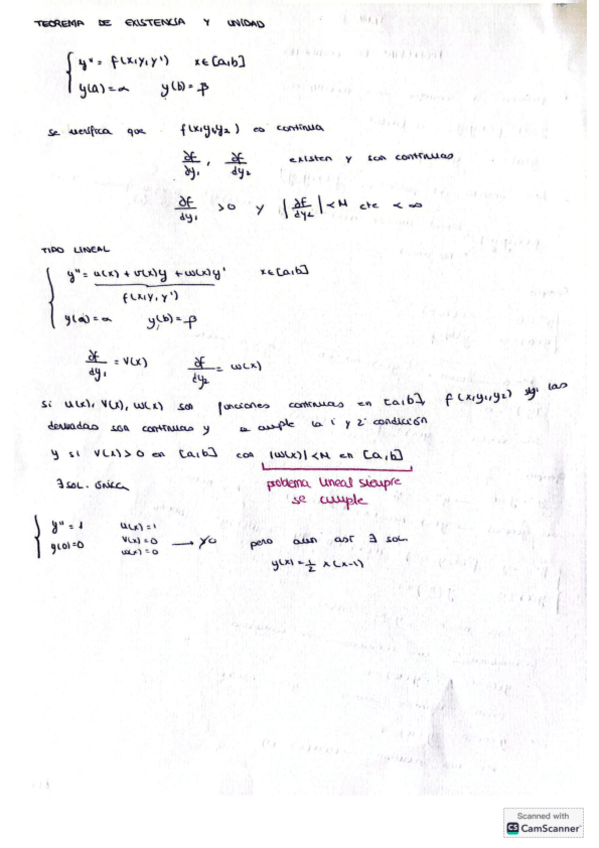 TEOREMA DE EXISTENCIA Y UNIDAD
y'' = f(x,y,y') x∈[a,b]
y(a)=α y(b)=β
se verifica que f(x,y1,y2) es continua
∂f/dy1 , ∂f/dy2 existen y son continuas
∂f/dy1 >0 y |∂f/dy2| <M cte < ∞
TIPO LINEAL
y'' = u(x) + v(x)y + w(x)y' x∈[a,b]
f(x,y,y')
y(a)=α y(b)=β
∂f/dy1 = V(x) ∂f/dy2 = w(x)
Si u(x), V(x), w(x) son funciones continuas en [a,b], f(x,y1,y2) y las
derivadas son continuas y se cumple la 1ª y 2ª condición
Y si V(x)>0 en [a,b] con |w(x)|<M en [a,b]
∃ SOL. ÚNICA problema lineal siempre
se cumple
y''=1 u(x)=1
y(0)=0 V(x)=0 → pero aun así ∃ sol.
w(x)=0 y(x)=1/2 x(x-1)
Scanned with
CS CamScanner